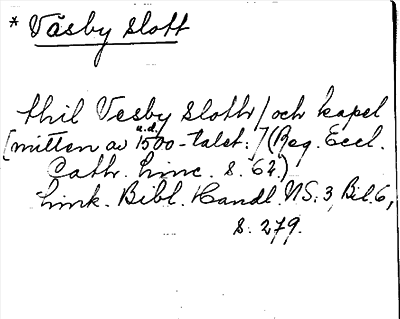 * Väsby slott
thil Vesby Sloth / och kapel
[mitten av 1500-talet:] (Reg. Eccl.
u.d.
Cath. Linc. s. 62.)
Link. Bibl. Handl. NS: 3, Bil. 6,
s. 279.